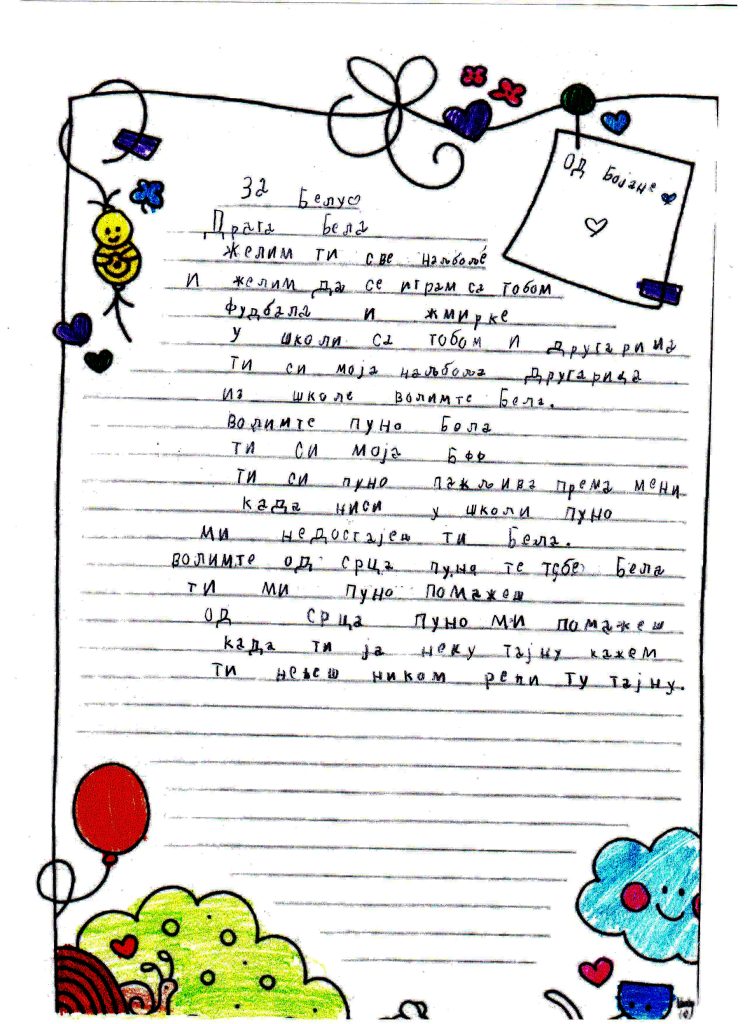 од Бојане
За Белу
Драга Бела
желим ти све најбоље
И желим да се играм са тобом
фудбала и жмирке
у школи са тобом и другарица
ти си моја најбоља другарица
из школе волимте Бела.
волимте пуно Бела
ти си моја Бфф
ти си пуно пажљива према мени
када ниси у школи пуно
ми недостајеш ти Бела.
волимте од срца пуно те тебе Бела
ти ми пуно помажеш
од срца пуно ми помажеш
када ти ја неку тајну кажем
ти нећеш ником рећи ту тајну.